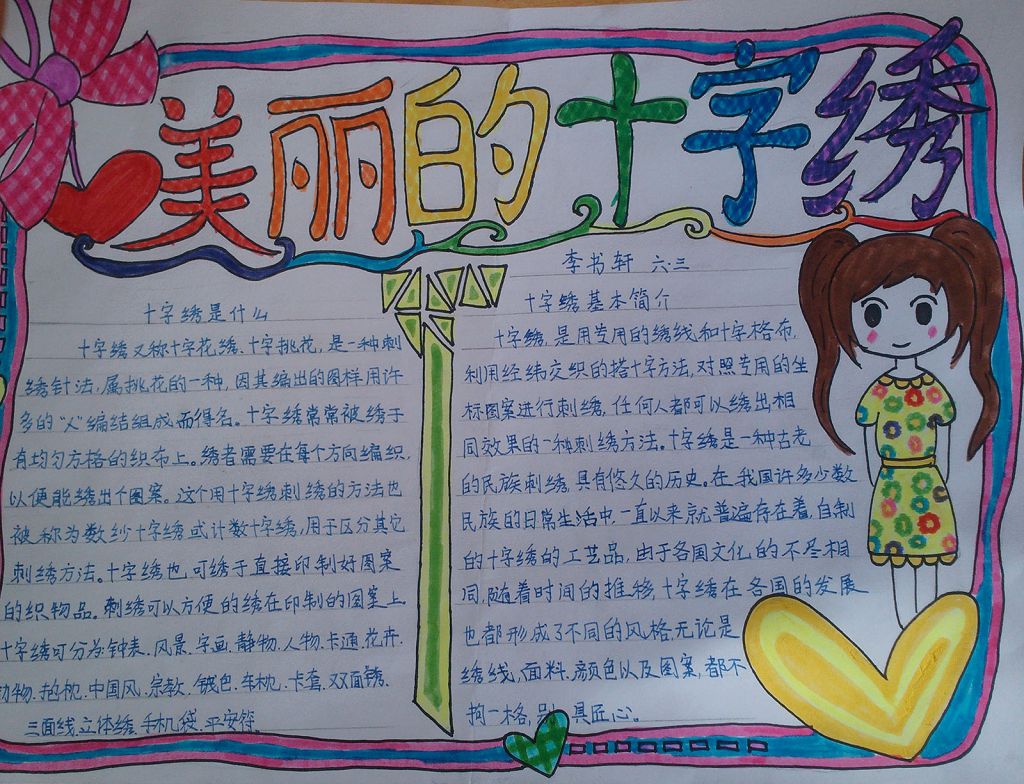 美丽的十字绣
李书轩 六.三
十字绣是什么
十字绣又称十字花绣、十字挑花,是一种刺
绣针法,属挑花的一种,因其编出的图样用许
多的“乂”编结组成而得名。十字绣常常被绣于
有均匀方格的织布上。绣者需要在每个方向编织,
以便能绣出个图案。这个用十字绣刺绣的方法也
被称为数纱十字绣或计数十字绣,用于区分其它
刺绣方法。十字绣也可绣于直接印制好图案
的织物品。刺绣可以方便的绣在印制的图案上。
十字绣可分为:钟表.风景.字画.静物.人物.卡通.花卉.
动物.抱枕.中国风.宗教.钱包.车枕.卡套.双面绣.
三面线.立体绣.手机袋.平安符.
十字绣基本简介
十字绣,是用专用的绣线和十字格布,
利用经纬交织的搭十字方法,对照专用的坐
标图案进行刺绣,任何人都可以绣出相
同效果的一种刺绣方法。十字绣是一种古老
的民族刺绣,具有悠久的历史。在我国许多少数
民族的日常生活中,一直以来就普遍存在着,自制
的十字绣的工艺品,由于各国文化的不尽相
同,随着时间的推移,十字绣在各国的发展
也都形成了不同的风格,无论是
绣线,面料.颜色以及图案,都不
拘一格,别具匠心。